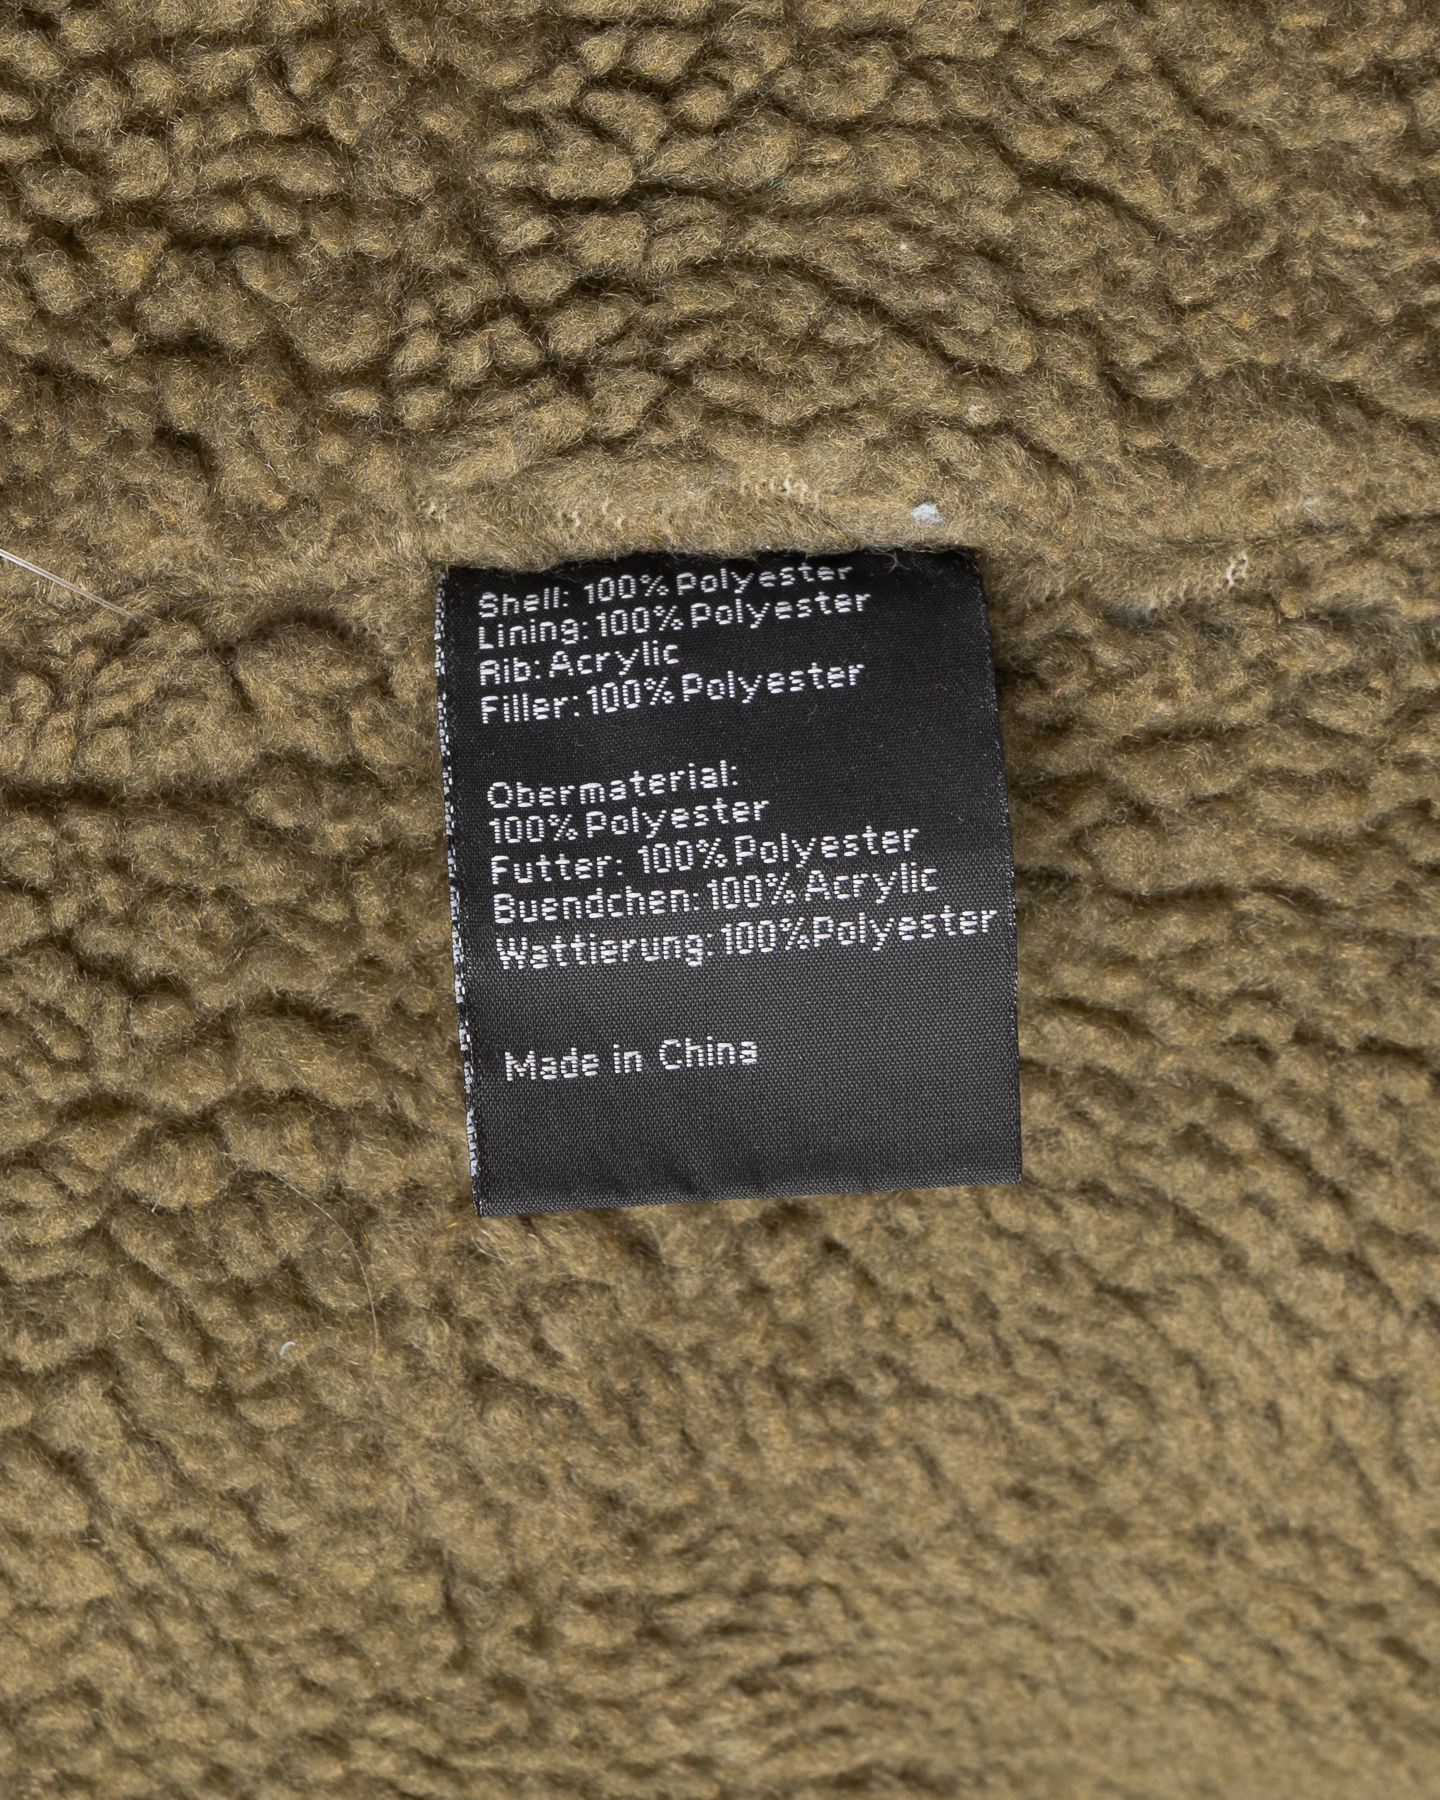 Shell: 100% Polyester
Lining: 100% Polyester
Rib: Acrylic
Filler: 100% Polyester
Obermaterial:
100% Polyester
Futter: 100% Polyester
Buendchen: 100% Acrylic
Wattierung: 100% Polyester
Made in China